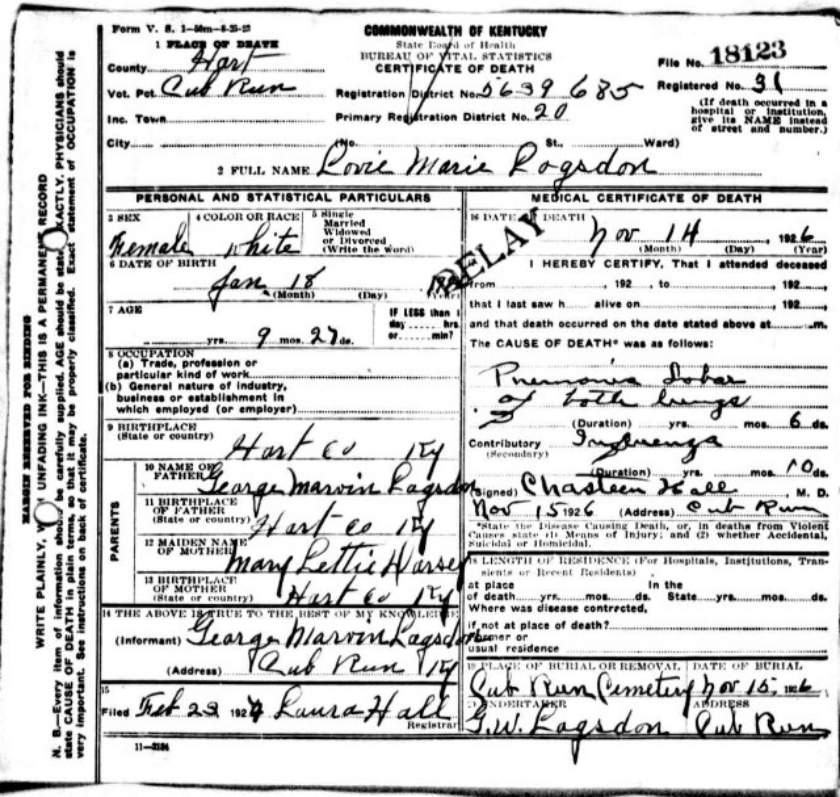 Form V. S. 1-50m-8-25-25
COMMONWEALTH OF KENTUCKY
State Board of Health
BUREAU OF VITAL STATISTICS
CERTIFICATE OF DEATH
File No. 18123
1 PLACE OF DEATH
County Hart
Vot. Pct. Cub Run
Registration District No. 5639 685
Registered No. 31
Inc. Town
Primary Registration District No. 20
(If death occurred in a hospital or institution, give its NAME instead of street and number.)
City (No. St., Ward)
2 FULL NAME Lovie Marie Logsdon
PERSONAL AND STATISTICAL PARTICULARS
3 SEX Female
4 COLOR OR RACE White
5 Single
Married
Widowed
or Divorced
(Write the word)
6 DATE OF BIRTH
Jan 18
(Month) (Day) (Year)
7 AGE
yrs. 9 mos. 27 ds.
IF LESS than 1
day hrs.
or min?
8 OCCUPATION
(a) Trade, profession or
particular kind of work
(b) General nature of industry,
business or establishment in
which employed (or employer)
9 BIRTHPLACE
(State or country)
Hart Co Ky
PARENTS
10 NAME OF
FATHER George Marvin Logsdon
11 BIRTHPLACE
OF FATHER
(State or country) Hart Co Ky
12 MAIDEN NAME
OF MOTHER Mary Lettie
13 BIRTHPLACE
OF MOTHER
(State or country) Hart Co Ky
14 THE ABOVE IS TRUE TO THE BEST OF MY KNOWLEDGE
(Informant) George Marvin Logsdon
(Address) Cub Run Ky
15
Filed Feb 23 192 Laura Hall
Registrar
11-3184
DELAY
MEDICAL CERTIFICATE OF DEATH
16 DATE OF DEATH
Nov 14, 1926
(Month) (Day) (Year)
I HEREBY CERTIFY, That I attended deceased
from , 192 , to , 192
that I last saw h alive on , 192
and that death occurred on the date stated above at m.
The CAUSE OF DEATH* was as follows:
Pneumonia Lobar
of both lungs
(Duration) yrs. mos. 6 ds.
Contributory Influenza
(Secondary)
(Duration) yrs. mos. 10 ds.
(Signed) Chasteen Hall M. D.
Nov 15 1926 (Address) Cub Run
*State the Disease Causing Death, or, in deaths from Violent
Causes state (1) Means of Injury; and (2) whether Accidental,
Suicidal or Homicidal.
18 LENGTH OF RESIDENCE (For Hospitals, Institutions, Tran-
sients or Recent Residents)
at place In the
of death yrs. mos. ds. State yrs. mos. ds.
Where was disease contrected,
if not at place of death?
former or
usual residence
19 PLACE OF BURIAL OR REMOVAL
DATE OF BURIAL
Cub Run Cemetery Nov 15, 1926
20 UNDERTAKER
ADDRESS
G.W. Logsdon Cub Run
MARGIN RESERVED FOR BINDING
WRITE PLAINLY, WITH UNFADING INK—THIS IS A PERMANENT RECORD
N. B.—Every item of information should be carefully supplied. AGE should be stated EXACTLY. PHYSICIANS should
state CAUSE OF DEATH in plain terms, so that it may be properly classified. Exact statement of OCCUPATION is
very important. See instructions on back of certificate.